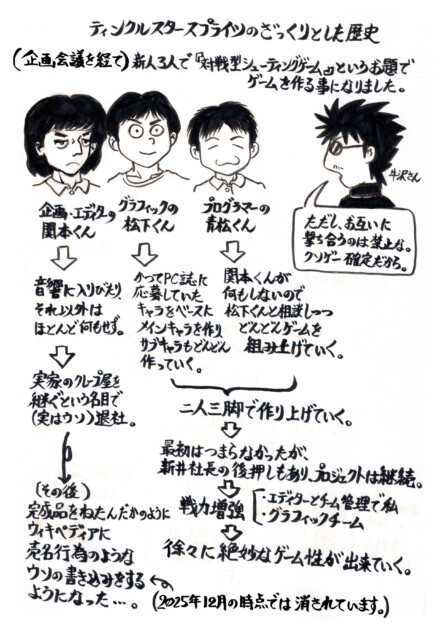 ティンクルスタースプライツのざっくりとした歴史
(企画会議を経て)新人3人で『対戦型シューティングゲーム』というお題で
ゲームを作る事になりました。
牛沢さん
ただし、お互いに
撃ち合うのは禁止な。
クソゲー確定だから。
企画・エディターの
関本くん
音響に入りびたり、
それ以外は
ほとんど何もせず。
実家のクレープ屋を
継ぐという名目で
(実はウソ)退社。
(その後)
完成品をねたんだかのように
ウィキペディアに
売名行為のような
ウソの書き込みをする
ようになった…。
(2025年12月の時点では消されています。)
グラフィックの
松下くん
かつてPC誌に
応募していた
キャラをベースに
メインキャラを作り
サブキャラもどんどん
作っていく。
プログラマーの
青松くん
関本くんが
何もしないので
松下くんと相談しつつ
どんどんゲームを
組み上げていく。
二人三脚で作り上げていく。
最初はつまらなかったが、
新井社長の後押しもあり、プロジェクトは継続。
戦力増強
・エディターとチーム管理で私
・グラフィックチーム
徐々に絶妙なゲーム性が出来ていく。